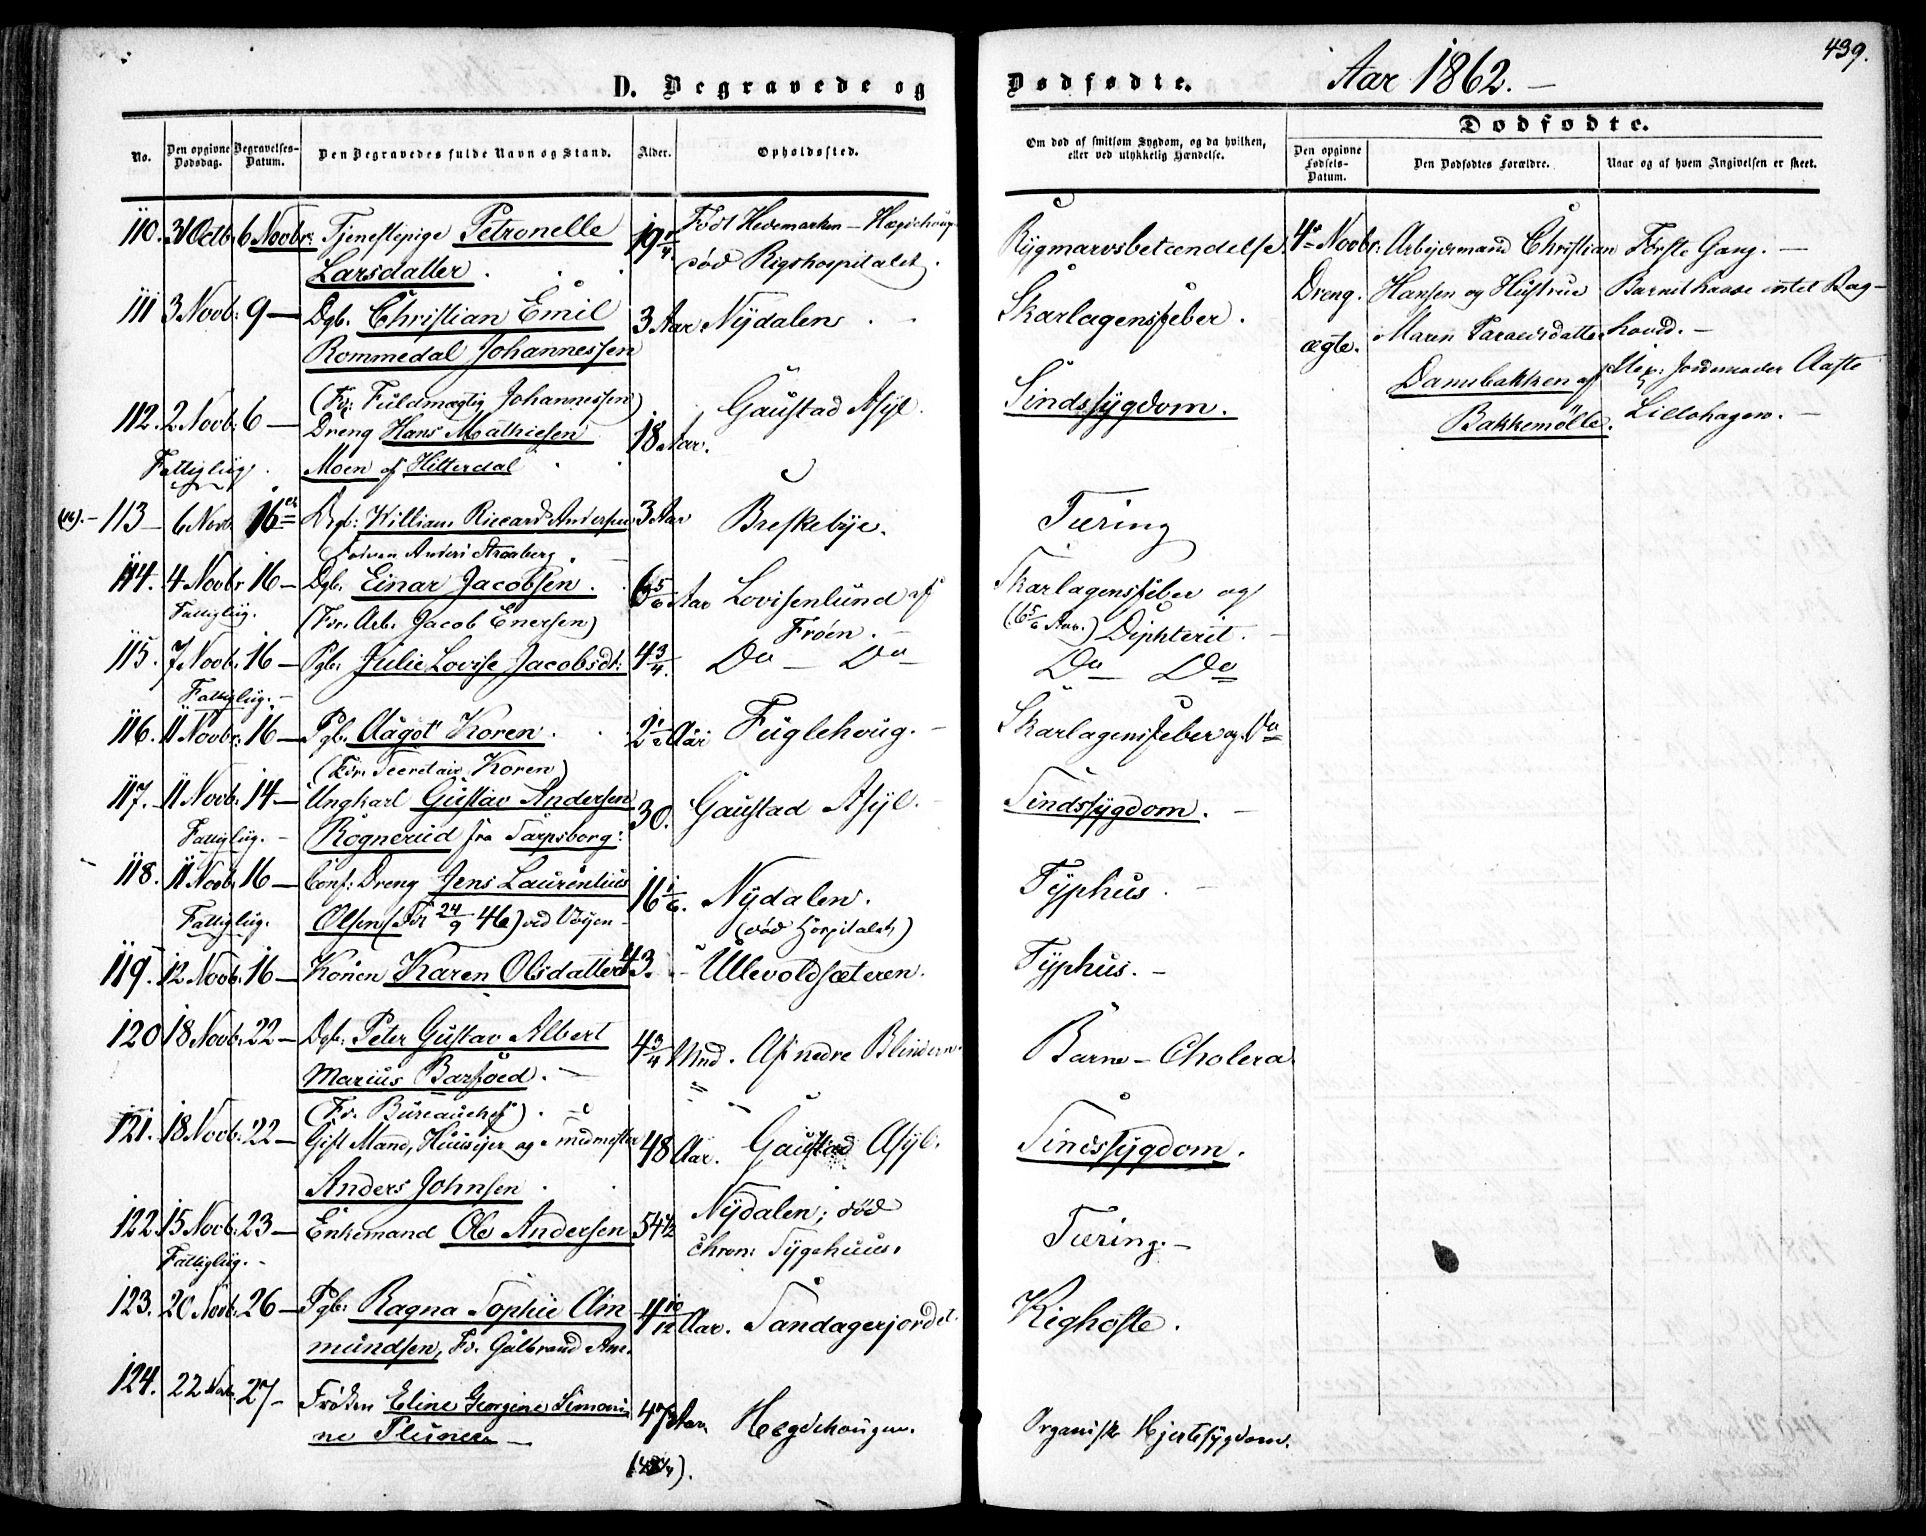 439.
D. Begravede og Dødfødte. Aar 1862. —
No.
Den opgivne Dødsdag.
Begravelses-Datum.
Den Begravedes fulde Navn og Stand.
Alder.
Opholdssted.
Om død af smitsom Sygdom, og da hvilken, eller ved ulykkelig Hændelse.
Dødfødte.
Den opgivne Fødsels-Datum.
Den Dødfødtes Forældre.
Naar og af hvem Angivelsen er skeet.
110. 31 Octb. 6 Novbr: Tjenestepige Petronelle 19 1/4 Født Hedemarken – Hægdehoug Rygmarvsbetændelse.
Larsdatter. død Rigshospitalet.
111 3 Novb: 9 — Dgb. Christian Emil 3 Aar Nydalen Skarlagensfeber.
Rommedal Johannessen
(Fdr: Fuldmægtig Johannessen)
112. 2 Novb: 6 — Dreng Hans Mathiesen 18 Aar. Gaustad Asyl. Sindssygdom.
Fattiglig. Moen af Hitterdal
(14). – 113 — 6 Novb. 16 — Dgb: William Riccard Andersen 3 Aar Breskebye. Tæring
Anders Straaberg.
114. 4 Novbr 16 — Dgb. Einar Jacobsen. 6 5/6 Aar Lovisenlund af Skarlagensfeber og
Fattiglig. (Fdr. Arb. Jacob Enersen) Frøen. — (6 5/6 Aar.) Diphterit. —
115. 7 Novb: 16 — Pgb. Julie Lovise Jacobsdt: 4 3/4. Do — Do Do — Do
Fattiglig. —
116. 11 Novbr: 16 — Pgb. Aagot Koren. 2 1/2 Aar Fuglehoug. — Skarlagensfeber og Do
(Fdr. Secretair Koren)
117. 11 Novb: 14 — Ungkarl Gustav Andersen 30. Gaustad Asyl. — Sindssygdom. —
Fattiglig. — Rognerud fra Sarpsborg:
118. 11 Novb. 16 — Conf: Dreng Jens Laurentius 16 1/6. Nydalen. Typhus. —
Fattiglig. Olsen (Fdt 24/9 46) ved Vøyen — (død Hospitalet)
119. 12 Novb: 16 — Konen Karen Olsdatter 43. — Ullevoldsæteren. Typhus. —
120 18 Novb: 22 — Dgb: Peter Gustav Albert 4 3/4 Mnd. Af nedre Blindern. Barne – Cholera
Marius Barfoed. —
(Fdr. Bureauchef).
121. 18 Novb: 22 — Gift Mand, Huusejer og 48 Aar. Gaustad Asyl. Sindssygdom.
Anders Johnsen
122. 15 Novb: 23 — Enkemand Ole Andersen 54 1/2 Nydalen; død Tæring. —
Fattiglig. — chron: Sygehuus.
123. 20 Novb: 26 — Pgb: Ragna Sophie Am 4 10/12 Aar. Sandagerjordet. Kighoste.
mundsen, Fdr. Gulbrand Am.
124. 22 Novb. 27 — Frøken Eline Georgine Simoni 47 Aar Hægdehougen. Organisk Hjertesygdom.
ne —
4de Novbr: Arbejdsmand Christian Første Gang. —
Dreng. Hansen og Hustrue Barnet havde intet Bag-
ægte. Maren Taraldsdatter hoved. —
Damsbakken af Jordemoder Aaste
Bakkemølle. Lillohagen. —